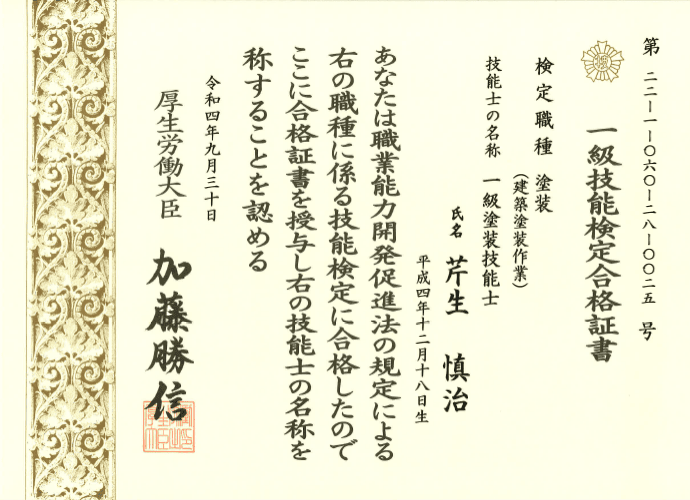 第 二二ー一ー〇六〇ー二八ー〇〇二五 号
一級技能検定合格証書
検定職種 塗装
（建築塗装作業）
技能士の名称 一級塗装技能士
氏名 芹生 慎治
平成四年十二月十八日生
あなたは職業能力開発促進法の規定による
右の職種に係る技能検定に合格したので
ここに合格証書を授与し右の技能士の名称を
称することを認める
令和四年九月三十日
厚生労働大臣
加藤勝信